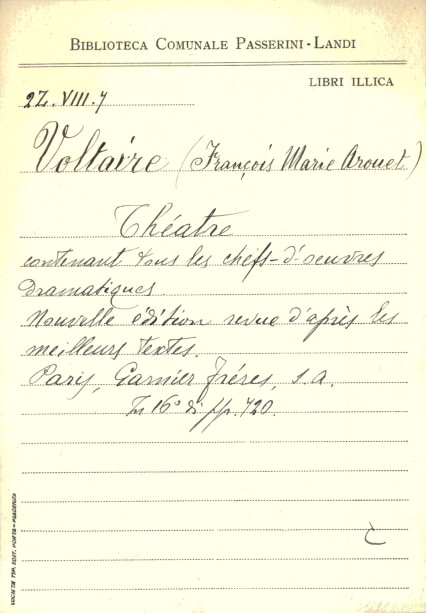 BIBLIOTECA COMUNALE PASSERINI-LANDI
LIBRI ILLICA
2Z.VIII.7
Voltaire (François Marie Arouet)
Théatre
contenant tous les chefs-d'oeuvres
dramatiques
Nouvelle édition revue d'après les
meilleurs textes.
Paris, Garnier Fréres, s.a.
In 16° di pp. 720.
SOCIETÀ TIP. EDIT. PORTA - PIACENZA